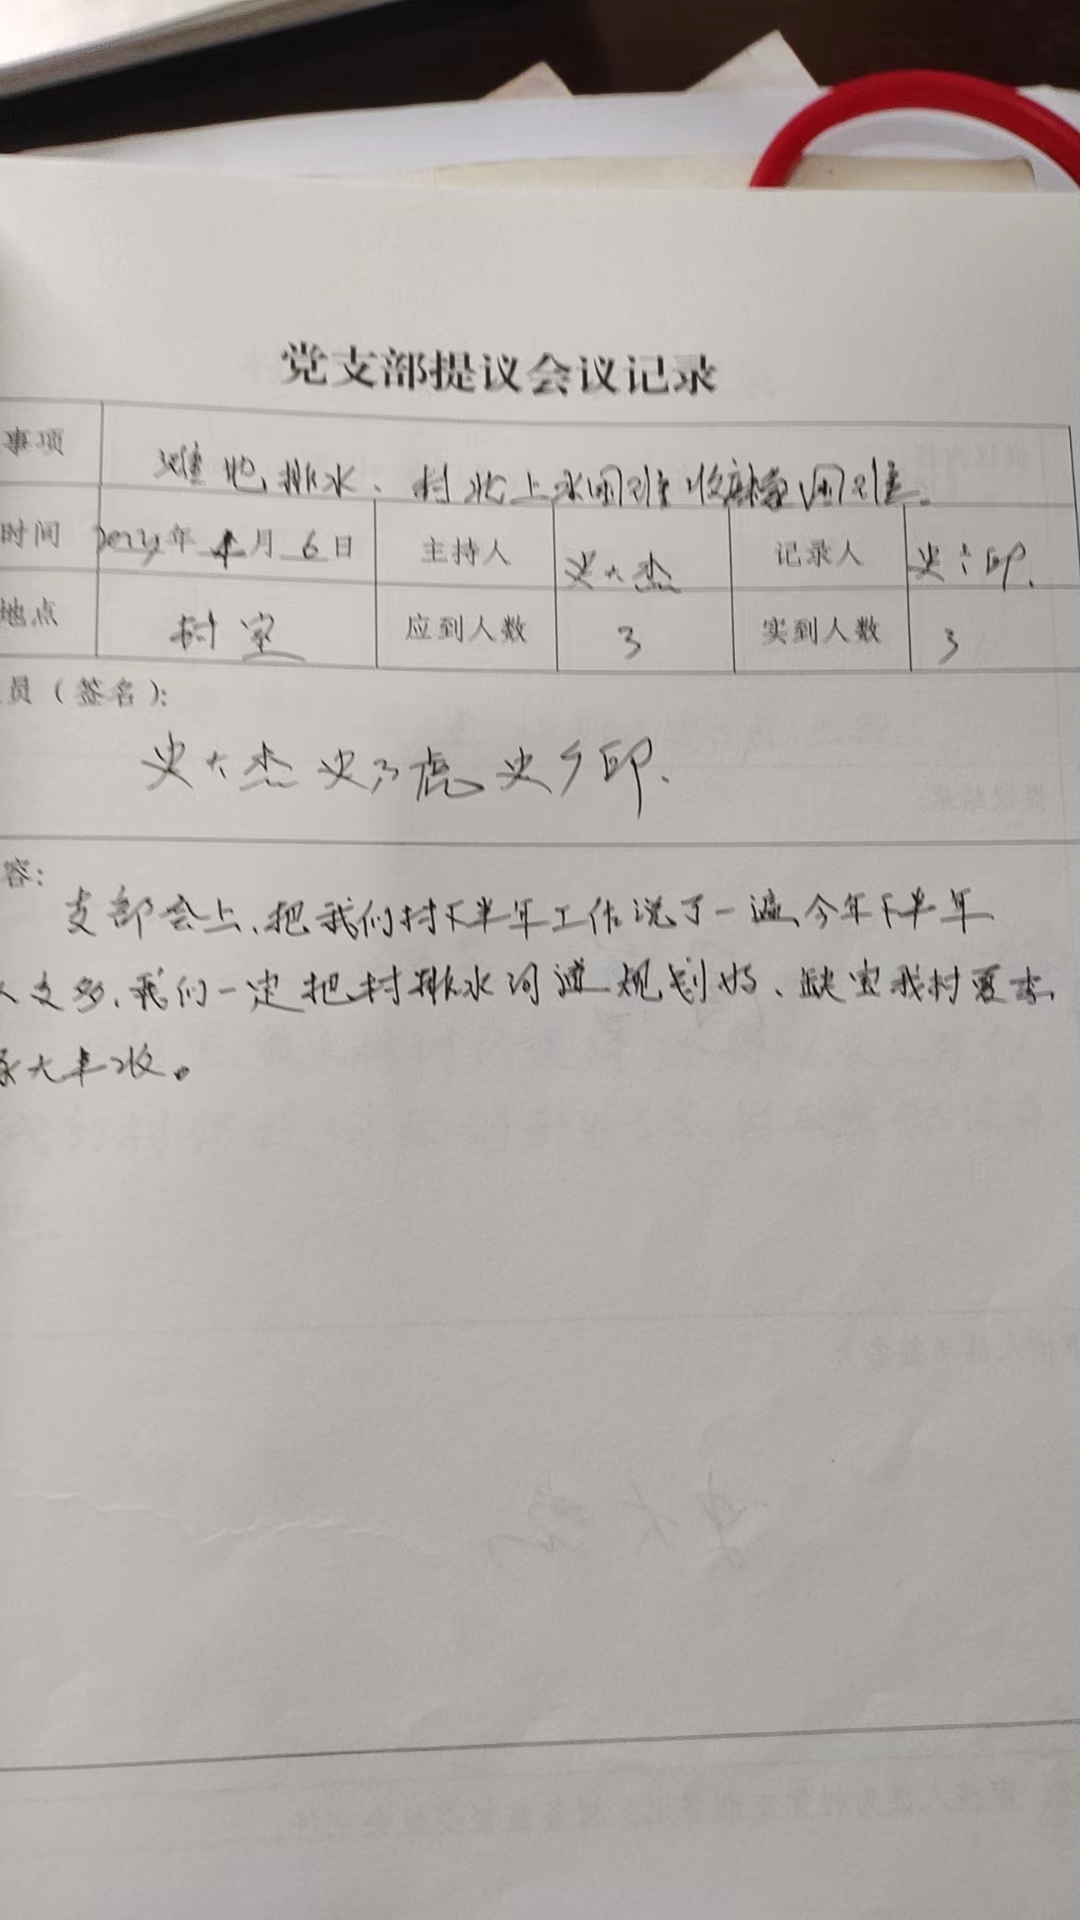 党支部提议会议记录
事项 地排水、村北上水困难收 困难。
时间 年 月 6 日 主持人 史大杰 记录人 史 印.
地点 村室 应到人数 3 实到人数 3
员(签名):
史大杰 史 虎 史 印.
容:
支部会上、把我们村下半年工作说了一遍、今年下半年
多、我们一定把村排水河道规划好、 我村夏
大丰收。